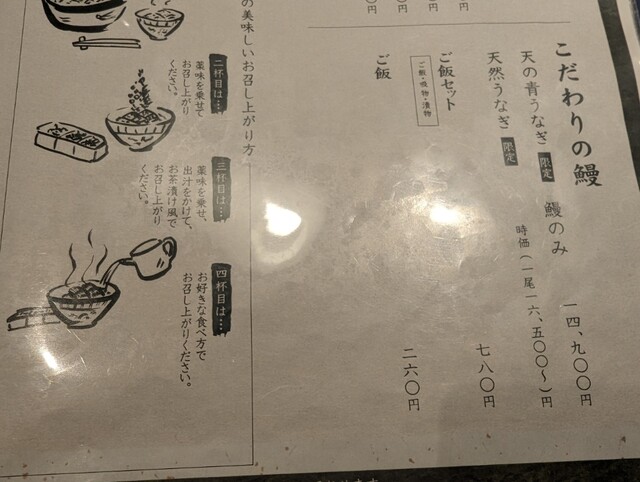 こだわりの鰻
天の青うなぎ 限定 鰻のみ 一四、九〇〇円
天然うなぎ 限定 時価(一尾一六、五〇〇〜)円
ご飯セット 七八〇円
ご飯・吸物・漬物
ご飯 二六〇円
円
円
円
円
の美味しいお召し上がり方
二杯目は…
薬味を乗せて
お召し上がり
ください。
三杯目は…
薬味を乗せ、
出汁をかけて、
お茶漬け風で
お召し上がり
ください。
四杯目は…
お好きな食べ方で
お召し上がりください。